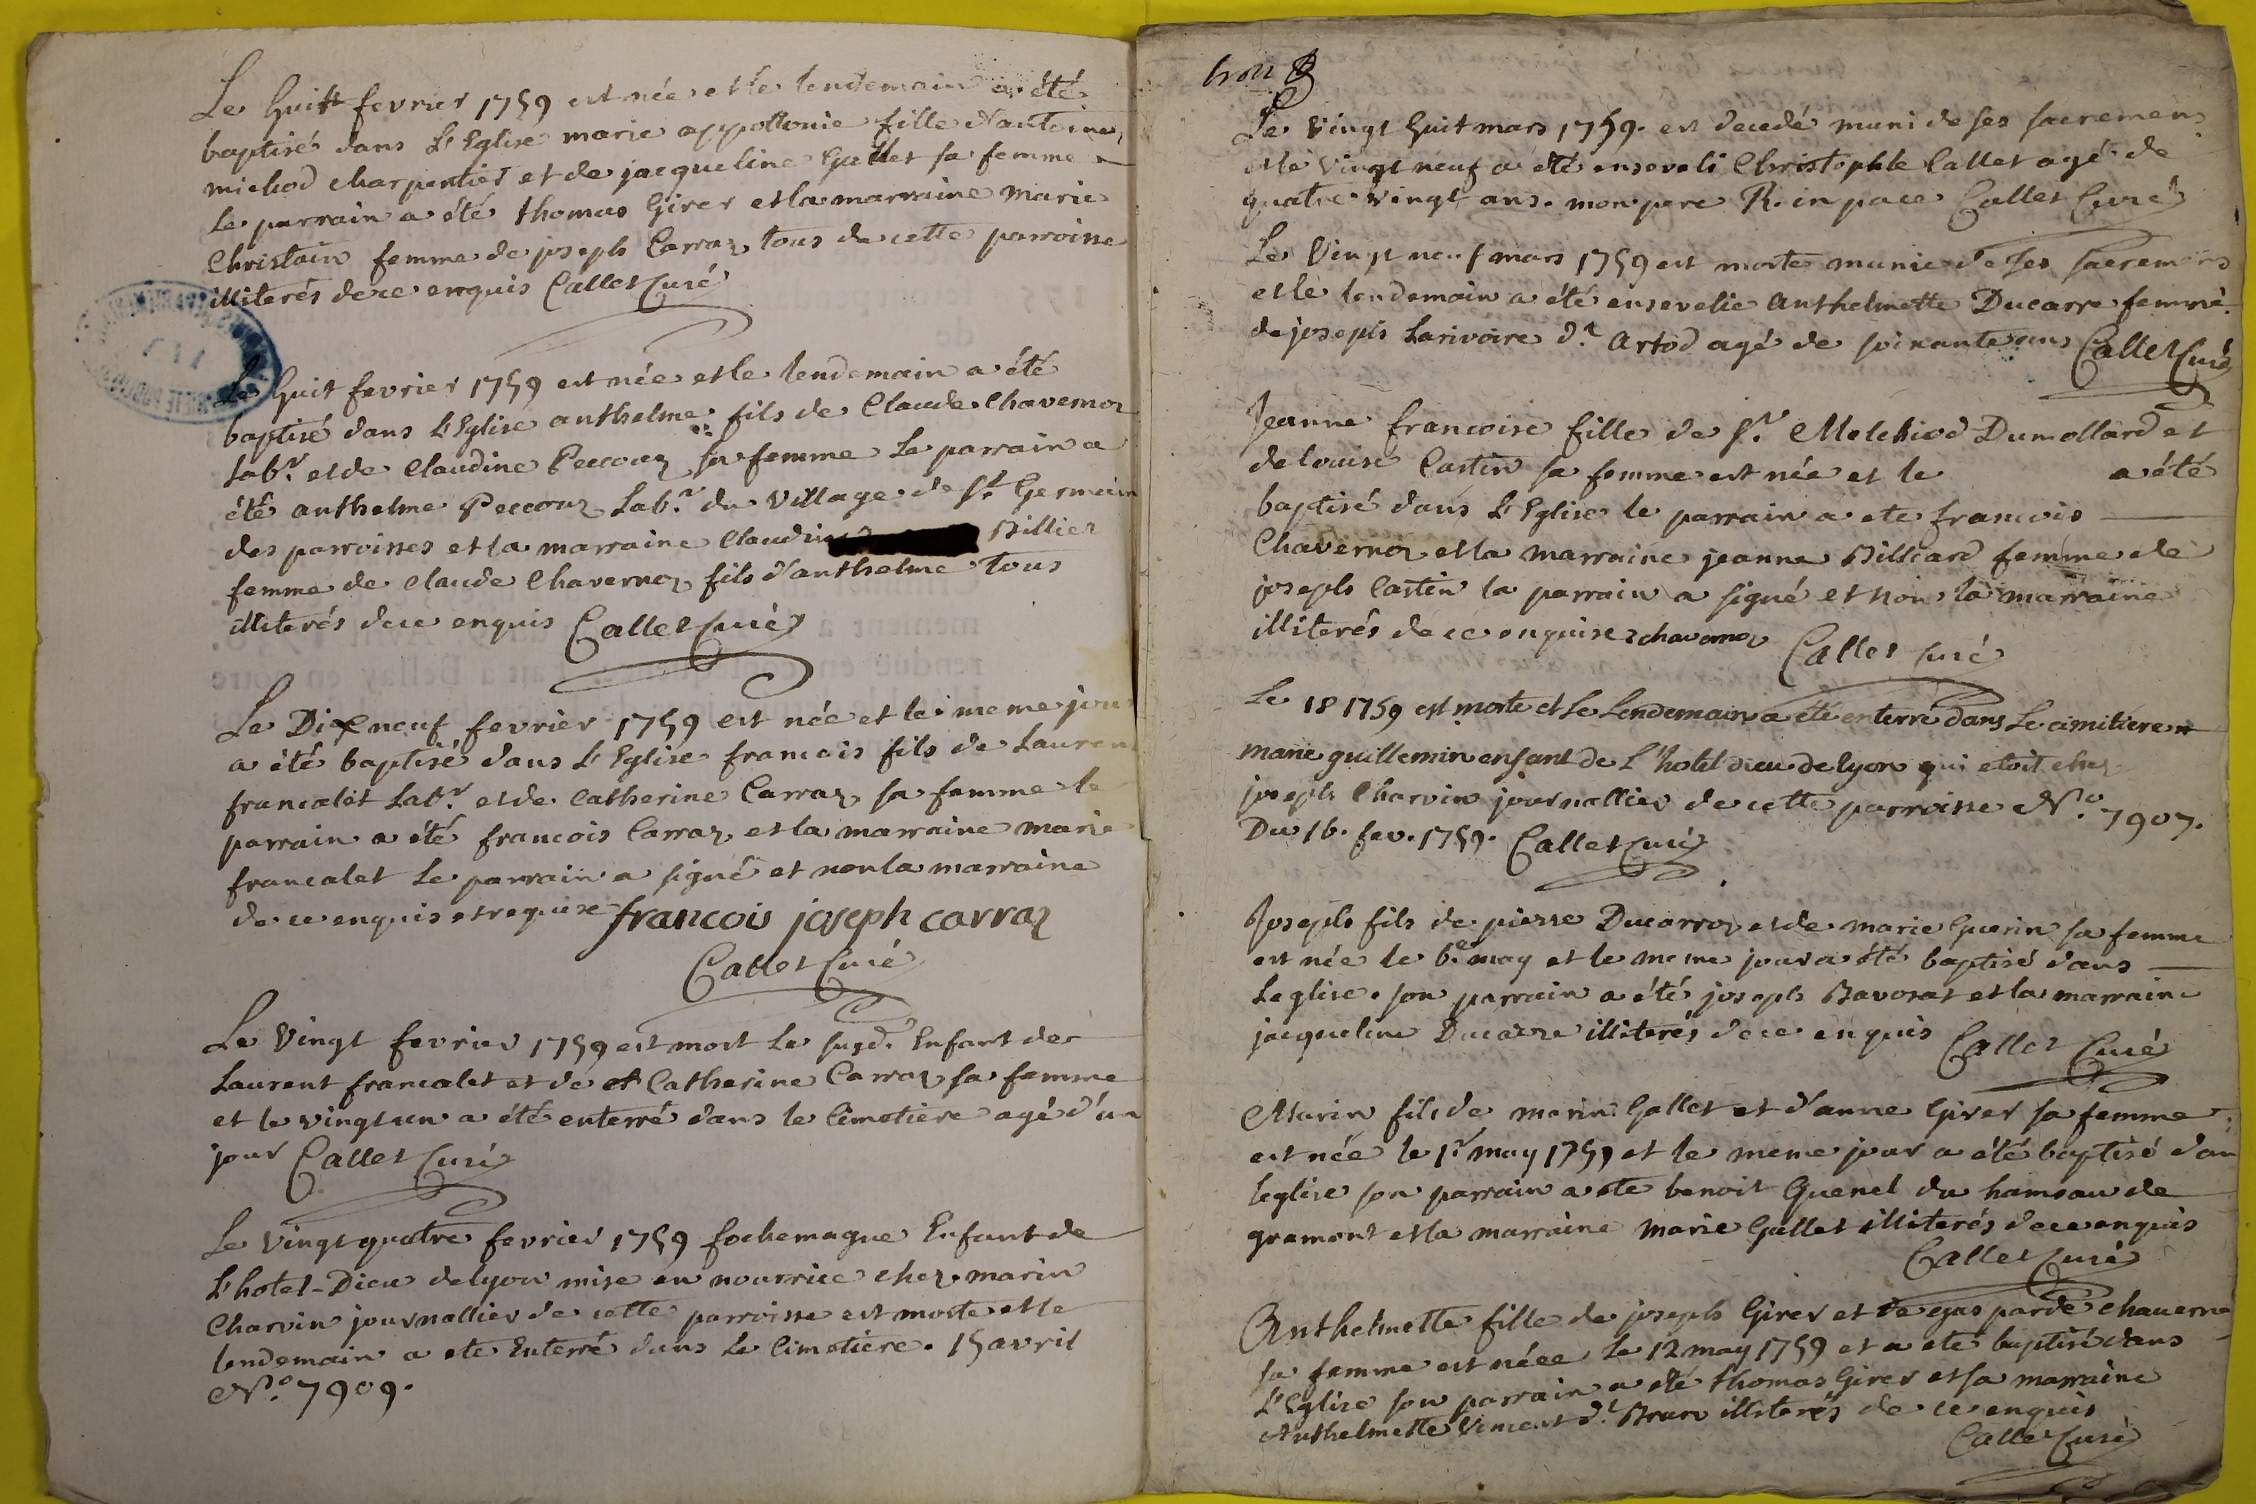 Le huitt fevrier 1759 est née et le lendemain a été
baptisé dans l'Eglise marie appollonie fille d'antoine
michod charpentier et de jacqueline Gallet sa femme
Le parrain a été thomas Girer et la marraine Marie
Christain femme de joseph Carraz tous de cette parroisse
illiterés de ce enquis Callet Curé
Le huit fevrier 1759 est née et le lendemain a été
baptisé dans l'Eglise anthelme fils de Claude Chavernoz
Labr. et de Claudine Peccouz sa femme Le parrain a
été anthelme Peccouz Labr. du village de St. Germain
des parroisses et la marraine Claudine Billiez
femme de Claude Chavernoz fils d'anthelme tous
illiterés de ce enquis Callet Curé
Le Dixneuf fevrier 1759 est née et le meme jour
a été baptisé dans l'Eglise francois fils de Laurent
francalet Labr. et de Catherine Carraz sa femme le
parrain a été francois Carraz et la marraine marie
francalet Le parrain a signé et non la marraine
de ce enquis et requise francois joseph carraz
Callet Curé
Le Vingt fevrier 1759 est mort Le susd. Enfant de
Laurent francalet et de et Catherine Carraz sa femme
et le vingt un a été enterré dans le Cimetiere agé d'un
jour Callet Curé
Le Vingt quatre fevrier 1759 fochemagne Enfant de
L'hotel-Dieu de lyon mise en nourrice chez marin
Charvin journallier de cette parroisse est morte et le
lendemain a ete Enterré dans Le Cimetiere. 15 avril
No. 7909.
Le Vingt huit mars 1759. est decedé muni de ses sacremens
et le vingt neuf a été enseveli Christophle Callet agé de
quatre vingt ans. mon pere R. in pace Callet Curé
Le Vingt neuf mars 1759 est morte munie de ses sacremens
et le lendemain a été ensevelie Anthelmette Ducarre femme
de joseph Larivoire dt. Artod agé de soixante ans Callet Curé
Jeanne francoise fille de Sr. Melchiod Dumollard et
de louise Castin sa femme est née et le a été
baptisé dans l'Eglise le parrain a ete francois
Chavernoz et la marraine jeanne Billiard femme de
joseph Castin la parrain a signé et non la marraine
illiterés de ce enquise chavernoz Callet Curé
Le 18 1759 est morte et Le Lendemain a été enterré dans Le cimitiere
marie guillemin enfant de L'hotel dieu de lyon qui etoit chez
joseph Charvin journallier de cette parroisse No. 7907.
Du 16. fev. 1759. Callet Curé
Joseph fils de pierre Ducarroz et de marie Guerin sa femme
est née le 6.e may et le meme jour a été baptisé dans
Leglise. son parrain a été joseph Bavosat et la marraine
jacqueline Ducarre illiterés de ce enquis Callet Curé
Marin fils de marin Gallet et d'anne Girer sa femme
est née le 1r. may 1759 et le meme jour a été baptisé dan
leglise son parrain a ete benoit Quenel du hameau de
gramont et la marraine Marie Gallet illiterés de ce enquis
Callet Curé
Anthelmette fille de joseph Girer et de gasparde chaverno
sa femme est néee Le 12 may 1759 et a été baptisé dans
L'Eglise son parrain a été thomas Girer et sa marraine
Anthelmette Vincent dt. Brun illiterés de ce enquis
Callet Curé